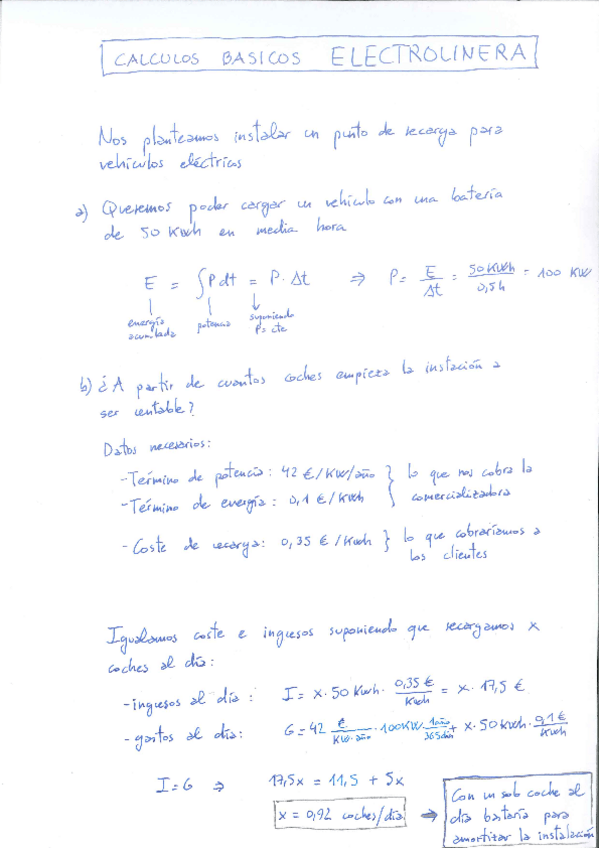 CALCULOS BASICOS ELECTROLINERA
Nos planteamos instalar un punto de recarga para
vehículos eléctricos
a) Queremos poder cargar un vehículo con una batería
de 50 KWh en media hora
E = ∫P dt = P · Δt ⇒ P = E/Δt = 50 KWh/0,5h = 100 KW
energía acumulada potencia suponiendo P = cte
b) ¿A partir de cuantos coches empieza la instación a
ser rentable?
Datos necesarios:
- Término de potencia: 42 €/KW/año } lo que nos cobra la
- Término de energía: 0,1 €/KWh } comercializadora
- Coste de recarga: 0,35 €/KWh } lo que cobraríamos a
los clientes
Igualamos coste e ingresos suponiendo que recargamos x
coches al día:
- ingresos al día: I = x · 50 KWh · 0,35 €/KWh = x · 17,5 €
- gastos al día: G = 42 €/KW·año · 100KW · 1año/365día + x · 50 KWh · 0,1 €/KWh
I = G ⇒ 17,5x = 11,5 + 5x
x = 0,92 coches/día ⇒
Con un solo coche al
día bastaría para
amortizar la instalación